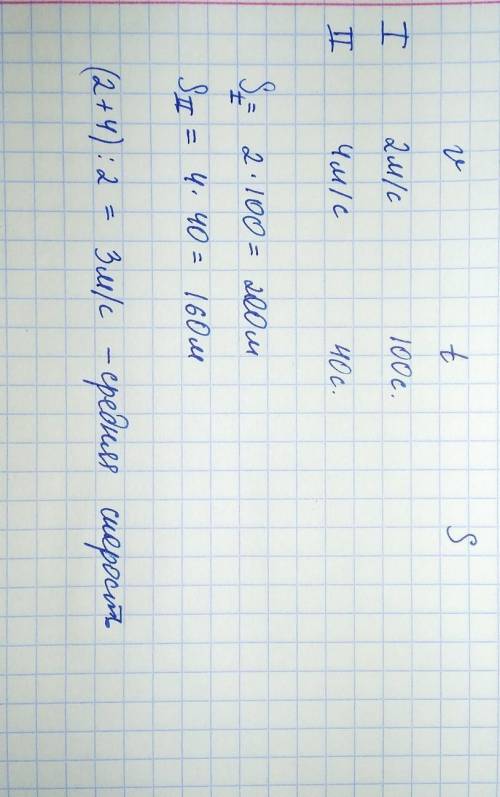 v t S
I 2м/с 100с.
II 4м/с 40с.
S I = 2·100 = 200м
S II = 4·40 = 160м
(2+4):2 = 3м/с – средняя скорость